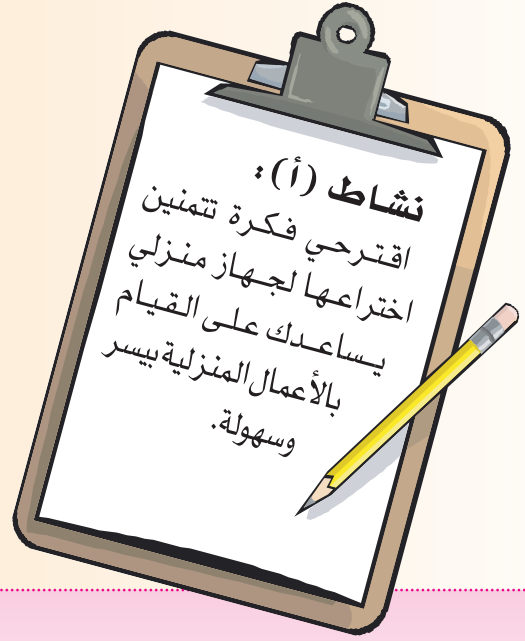 نشاط (أ):
اقترحي فكرة تتمنين
اختراعها لجهاز منزلي
يساعدك على القيام
بالأعمال المنزلية بيسر
وسهولة.